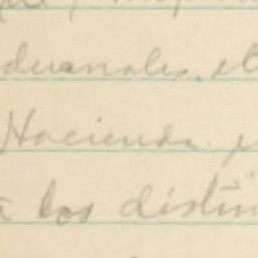 duanales, et
Hacienda y
a los distin